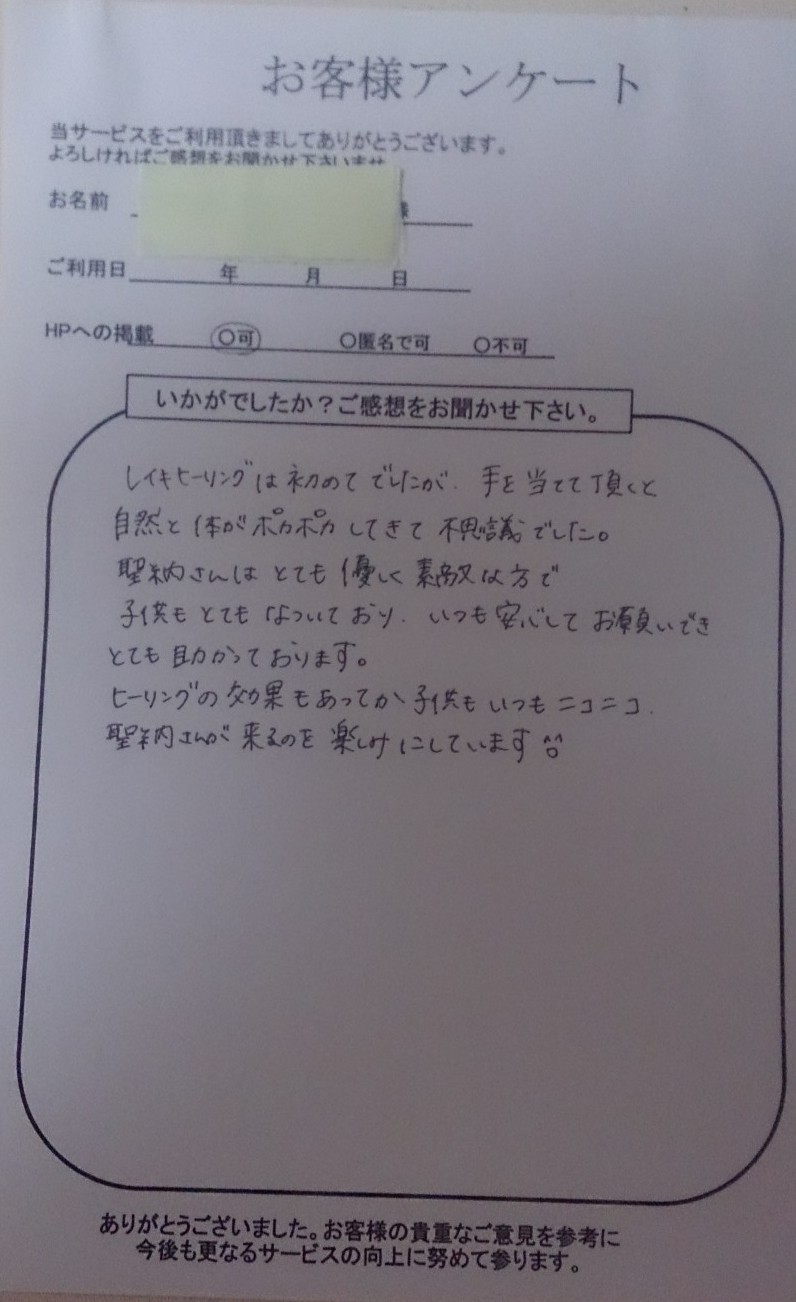 お客様アンケート
当サービスをご利用頂きましてありがとうございます。
よろしければご感想をお聞かせ下さいませ
お名前 様
ご利用日 年 月 日
HPへの掲載 〇可 〇匿名で可 〇不可
いかがでしたか？ご感想をお聞かせ下さい。
レイキヒーリングは初めてでしたが、手を当てて頂くと
自然と体がポカポカしてきて不思議でした。
聖納さんはとても優しく素敵な方で
子供もとてもなついており、いつも安心してお願いでき
とても助かっております。
ヒーリングの効果もあってか子供もいつもニコニコ、
聖納さんが来るのを楽しみにしています
ありがとうございました。お客様の貴重なご意見を参考に
今後も更なるサービスの向上に努めて参ります。